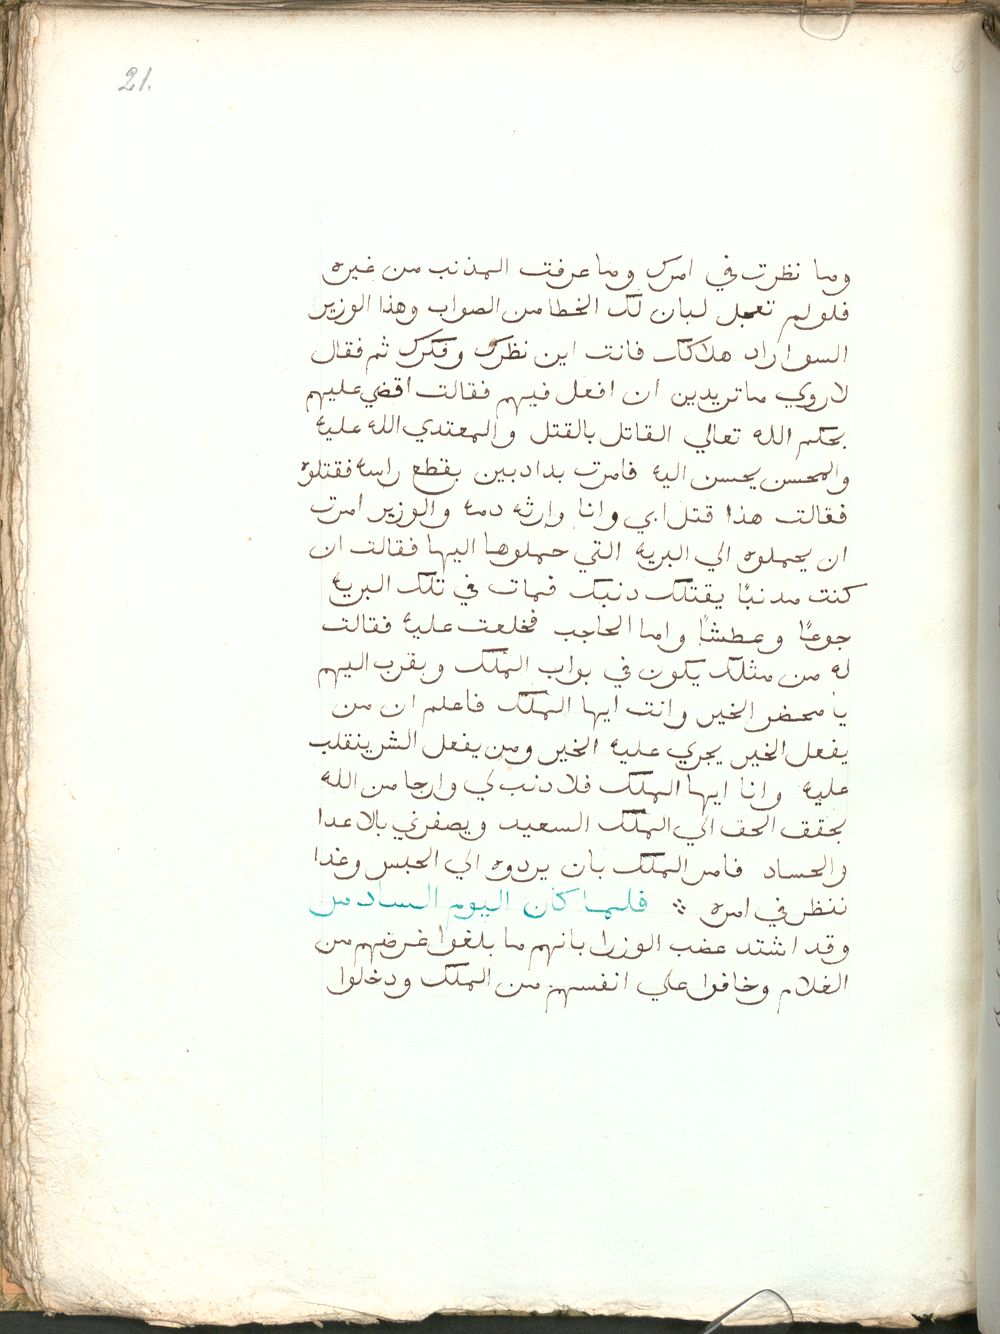 21.
وما نظرت في امرك وما عرفت المذنب من غيره
فلو لم تعجل لبان لك الخطا من الصواب وهذا الوزير
السو اراد هلاكك فانت اين نظرك وفكرك ثم فقال
لاروي ما تريدين ان افعل فيهم فقالت اقضي عليهم
بحكم الله تعالي القاتل بالقتل والمعتدي الله عليه
والمحسن يحسن اليه فامرت بدادبين بقطع راسه فقتلوه
فقالت هذا قتل ابي وانا وارثه دمه والوزير امرت
ان يحملوه الي البريه التي حملوها اليها فقالت ان
كنت مدنبًا يقتلك دنبك فمات في تلك البريه
جوعًا وعطشًا واما الحاجب فخلعت عليه فقالت
له من مثلك يكون في بواب الملك ويقرب اليهم
يا محضر الخير وانت ايها الملك فاعلم ان من
يفعل الخير يجري عليه الخير ومن يفعل الشر ينقلب
عليه وانا ايها الملك فلا دنب لي وارجا من الله
يحقق الحق الي الملك السعيد ويصفرني بالاعدا
والحساد فامر الملك بان يردوه الي الحبس وغدا
ننظر في امره ⁘ فلما كان اليوم السادس
وقد اشتد غضب الوزرا بانهم ما بلغوا غرضهم من
الغلام وخافوا علي انفسهم من الملك ودخلوا